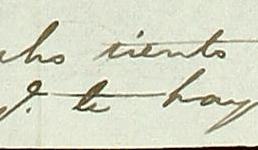 cho tiento
te hay